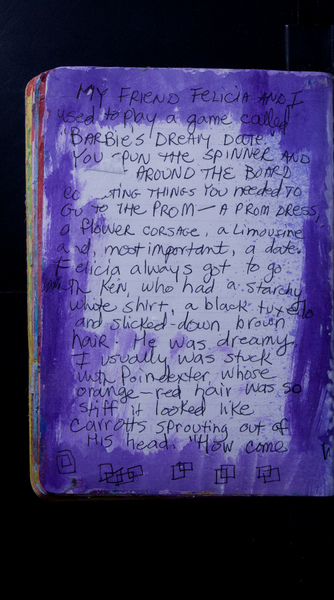 MY FRIEND FELICIA AND I
used to play a game called
BARBie's DREAM DATE.
YOU SPUN THE SPINNER AND
AROUND THE BOARD
THINGS YOU NEEDED TO
GO TO THE PROM — A PROM DRESS,
a flower corsage, a Limousine
and, most important, a date.
Felicia always got to go
with Ken, who had a starchy
white shirt, a black tuxedo
and slicked-down brown
hair. He was dreamy.
I usually was stuck
with Poindexter, whose
orange-red hair was so
stiff it looked like
carrots sprouting out of
His head. "How come